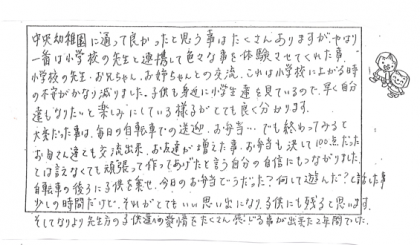 中央幼稚園に通って良かったと思う事はたくさんありますが、やはり
一番は小学校の先生と連携して色々な事を体験させてくれた事。
小学校の先生・お兄ちゃん、お姉ちゃんとの交流、これは小学校に上がる時
の不安がかなり減りました。子供も身近に小学生達を見ているので、早く自分
達もなりたいと楽しみにしている様子がとても良く分かります。
大変だった事は、毎日の自転車での送迎、お弁当…でも終わってみると
お母さん達とも交流出来、お友達が増えた事、お弁当も決して100点だった
とは言えなくても頑張って作ってあげたと言う自分の自信にもつながりました!
自転車の後ろに子供を乗せ、今日のお弁当どうだった?何して遊んだ?と話した事
少しの時間だけど、それがとてもいい思い出になり、子供にも残ると思います。
そしてなにより先生方の子供達への愛情をたくさん感じる事が出来た2年間でした。